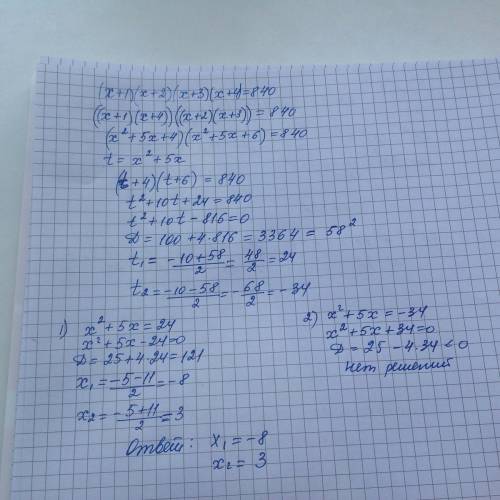 (x+1)(x+2)(x+3)(x+4)=840
((x+1)(x+4))((x+2)(x+3))=840
(x²+5x+4)(x²+5x+6)=840
t=x²+5x
(t+4)(t+6)=840
t²+10t+24=840
t²+10t-816=0
D=100+4·816=3364=58²
t₁=(-10+58)/2=48/2=24
t₂=(-10-58)/2=-68/2=-34
1) x²+5x=24
x²+5x-24=0
D=25+4·24=121
x₁=(-5-11)/2=-8
x₂=(-5+11)/2=3
2) x²+5x=-34
x²+5x+34=0
D=25-4·34<0
Нет решений
Ответ: x₁=-8
x₂=3